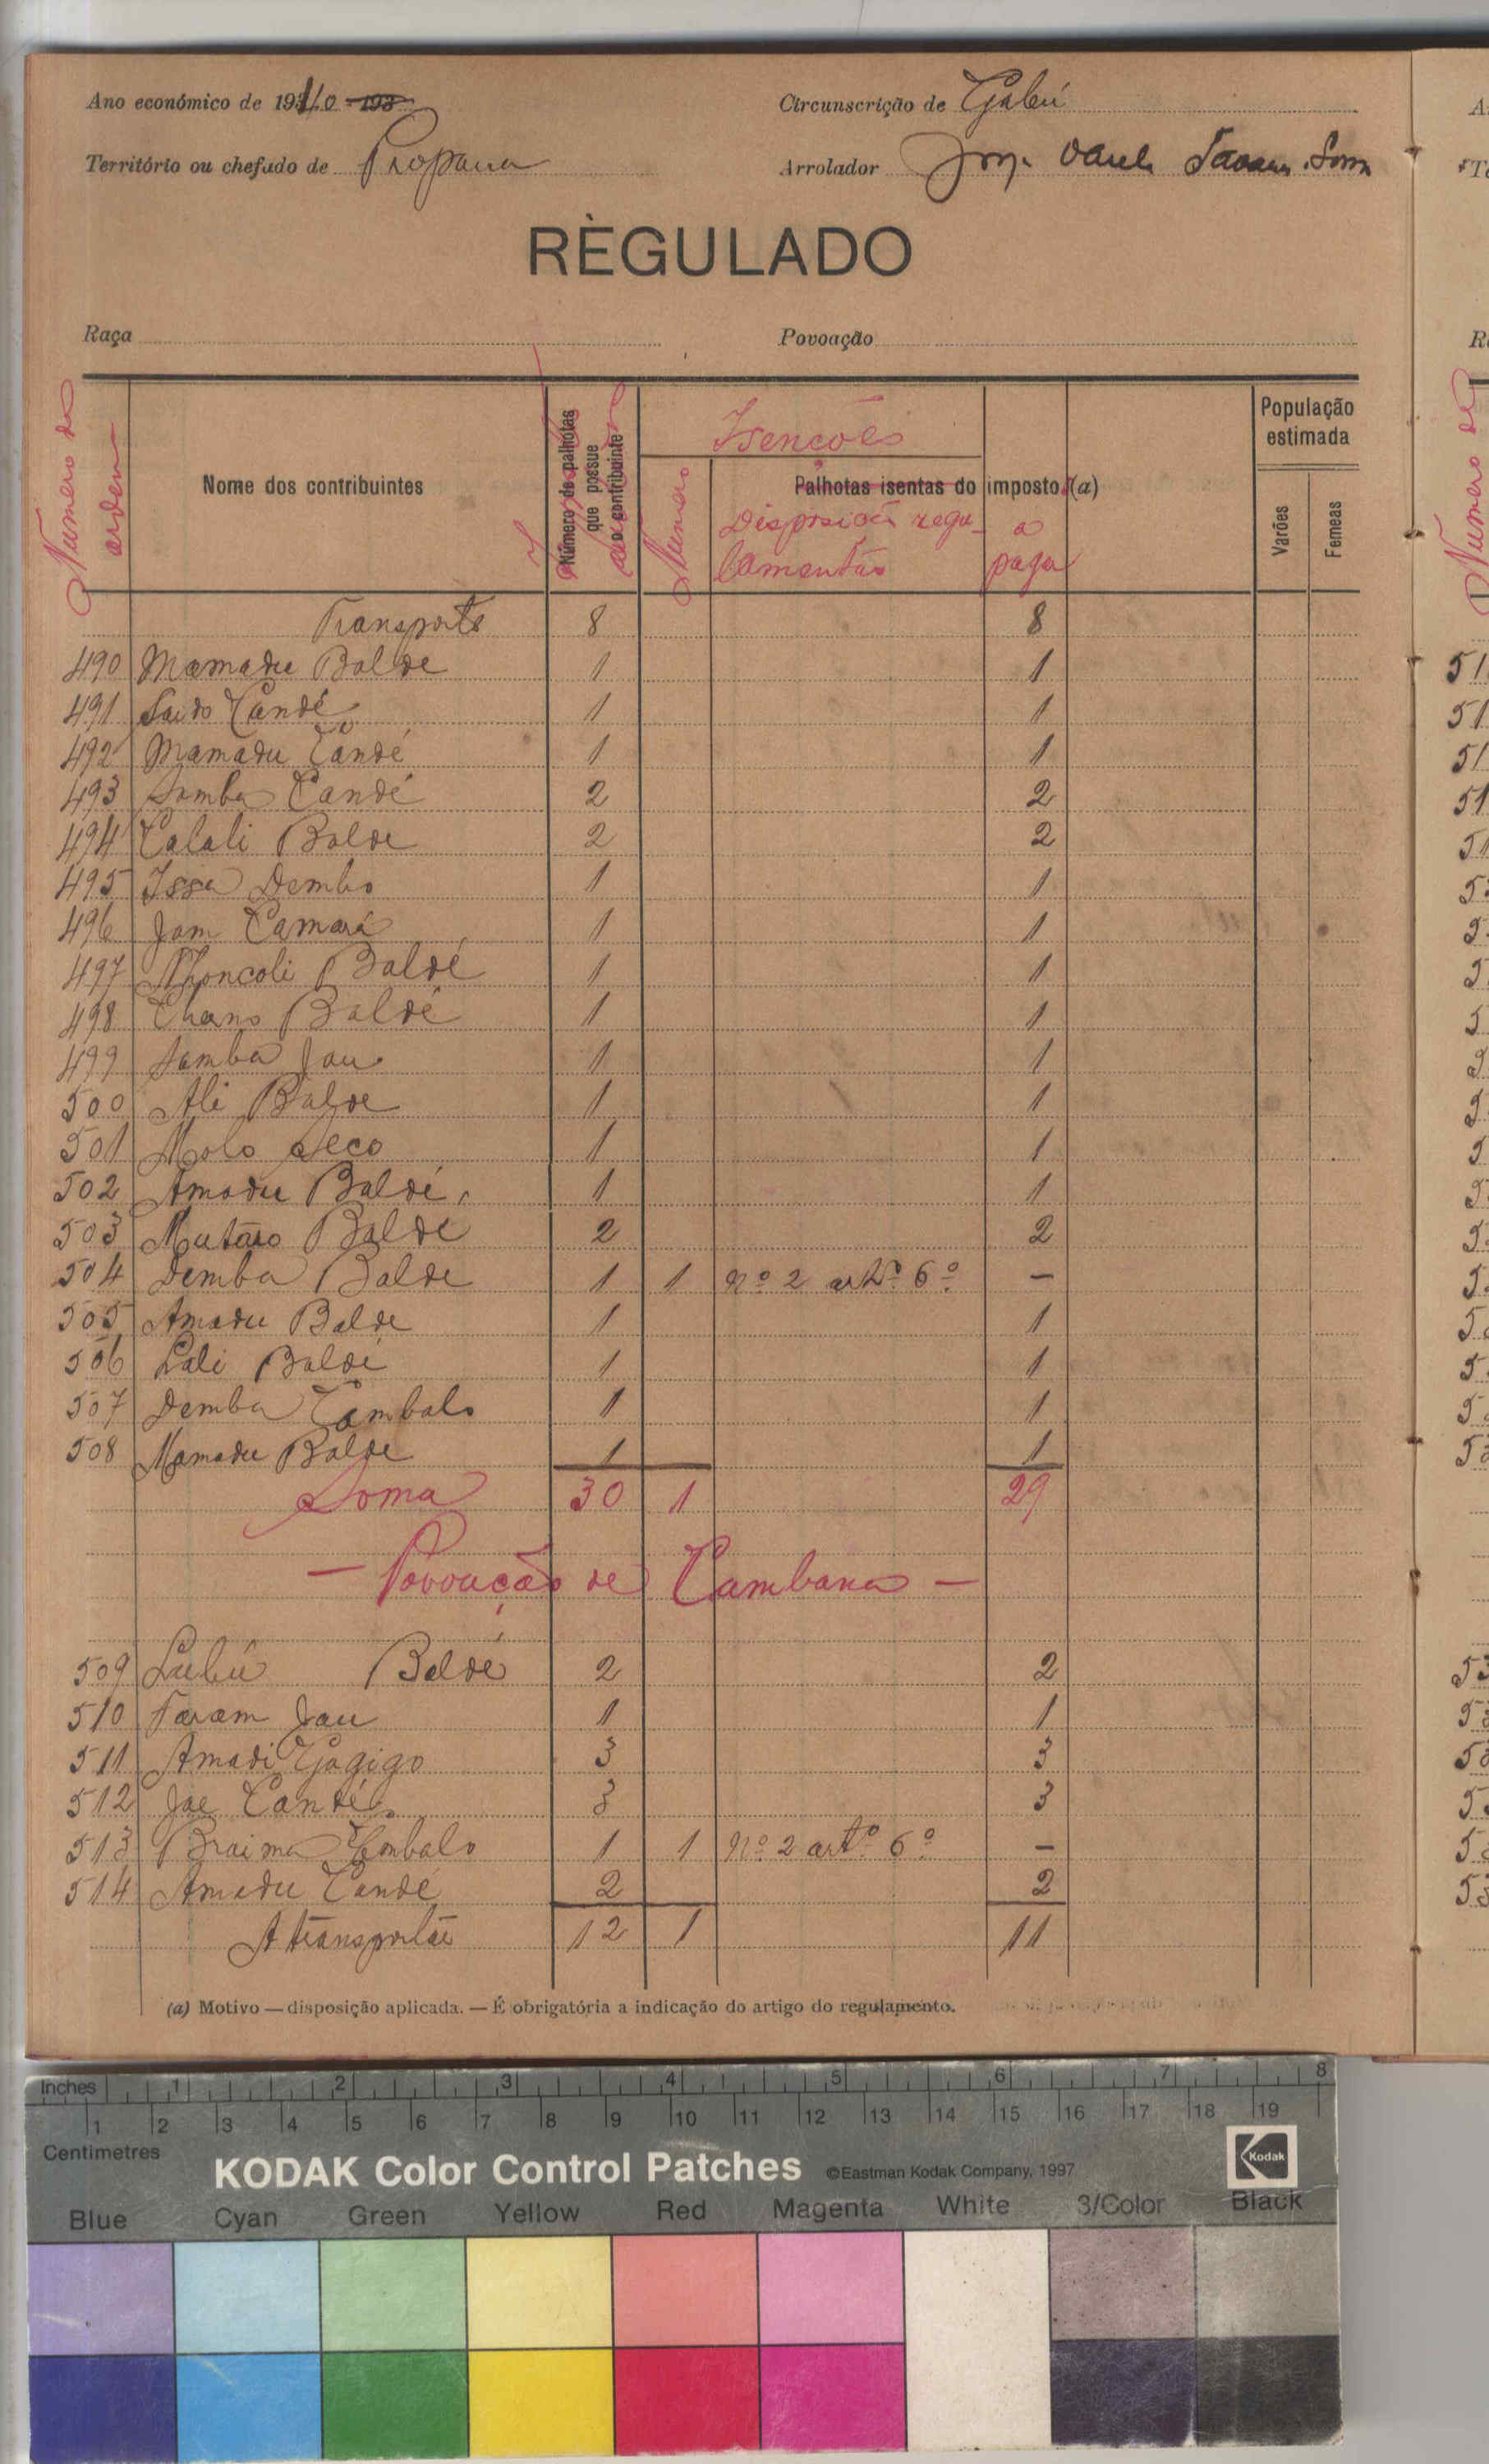 Ano económico de 1940 193
Circunscrição de Gabú
Território ou chefado de Propana
Arrolador Jorge
RÈGULADO
Raça
Povoação
Numero de ordem
Nome dos contribuintes
Número de palhotas que possue o contribuinte
Isencões
Numero
Palhotas isentas do imposto (a)
Disposição regulamentar
a pagar
População estimada
Varões
Femeas
Transporte 8 8
490 Mamadu Balde 1 1
491 Saido Candé 1 1
492 Mamadu Candé 1 1
493 Samba Candé 2 2
494 Calali Balde 2 2
495 Issa Dembo 1 1
496 Jam Camará 1 1
497 Nhoncoli Baldé 1 1
498 Chano Baldé 1 1
499 Samba Jau 1 1
500 Ali Balde 1 1
501 Molo Seco 1 1
502 Amadu Baldé 1 1
503 Mutaro Balde 2 2
504 Demba Balde 1 1 nº 2 artº 6º –
505 Amadu Balde 1 1
506 Lali Baldé 1 1
507 Demba Cambalo 1 1
508 Mamadu Balde 1 1
Soma 30 1 29
— Povoação de Cambana —
509 Lubú Baldé 2 2
510 Faram Jau 1 1
511 Amadi Gagigo 3 3
512 Jae Candé 3 3
513 Braima Embalo 1 1 nº 2 artº 6º –
514 Amadu Candé 2 2
A transportar 12 1 11
(a) Motivo — disposição aplicada. — É obrigatória a indicação do artigo do regulamento.
Inches 1 2 3 4 5 6 7 8
1 2 3 4 5 6 7 8 9 10 11 12 13 14 15 16 17 18 19
Centimetres
KODAK Color Control Patches ©Eastman Kodak Company, 1997 Kodak
Blue Cyan Green Yellow Red Magenta White 3/Color Black